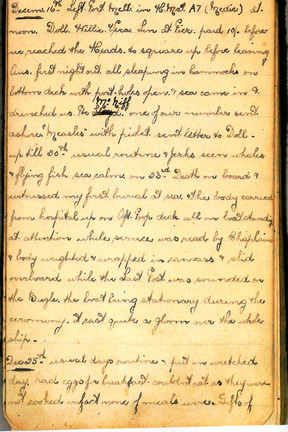 Decem 16th Left Port Melb. in H. Mat A7 (Medic) at
noon. Doll. Nellie. Veras Len at Pier. paid 10/- before
we reached the Heads. to square up before leaving
Aus. first night out all sleeping in hammocks on
bottom deck with port holes open. & sea came in &
drenched us. Pte
Mc Niff
one of our number sent
ashore "Measles" with pickst. sent letter to Doll -
up till 20th usual routine & Jerks seen whales
& flying fish sea calm. on 23rd Death on board &
witnessed my first burial at sea & the body carried
from hospital up on Aft Poop deck all on boat standing
at attention while service was read by Chaplain
& body weighted & wrapped in canvass & slid
overboard while the Last Post was sounded on
the Bugle. the boat being stationary dureing the
ceromony. it cast quite a gloom over the whole
ship.
Dec 25th usual days routine & put in wretched
day had eggs for breakfast. couldnt eat as they were
not cooked infact none of meals were. Gifts of